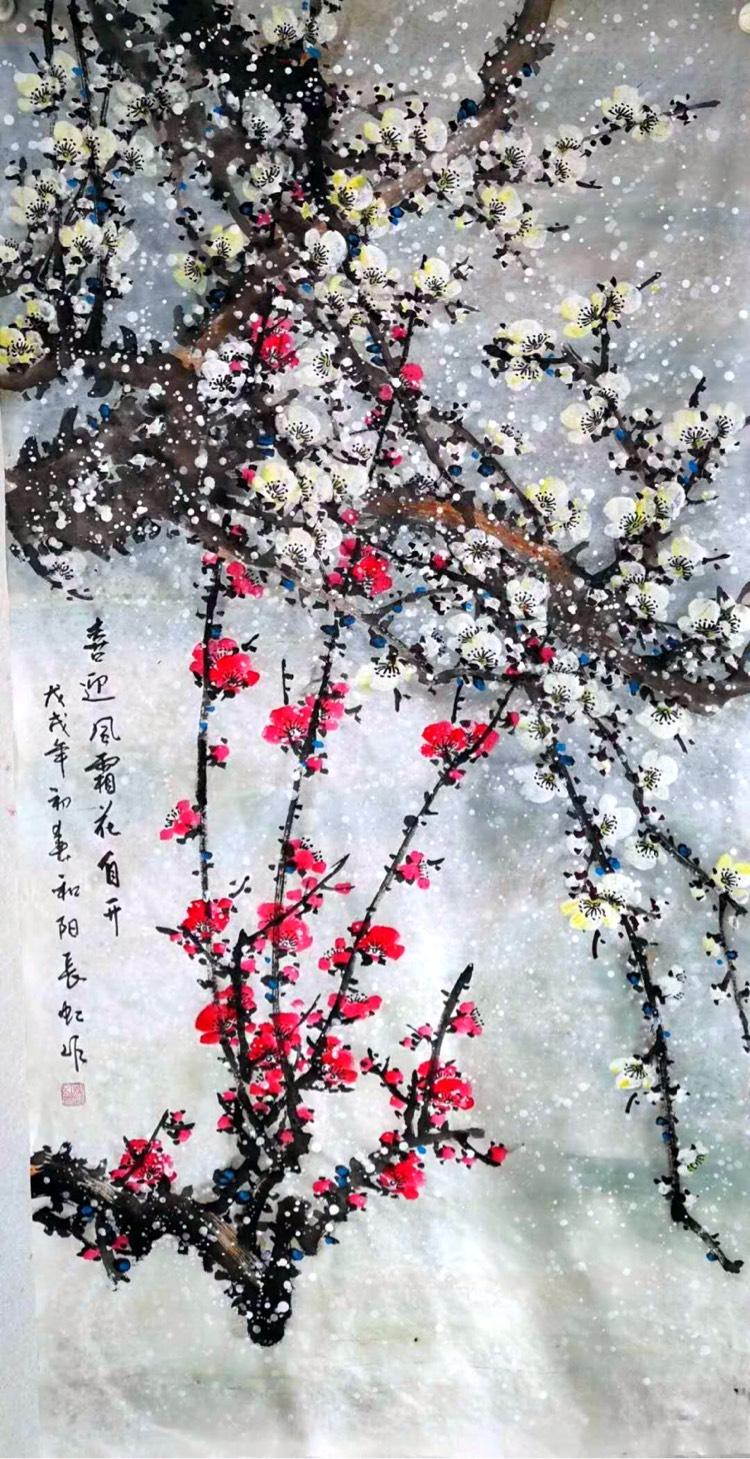 喜迎风霜花自开
戊戌年初春和阳长虹作